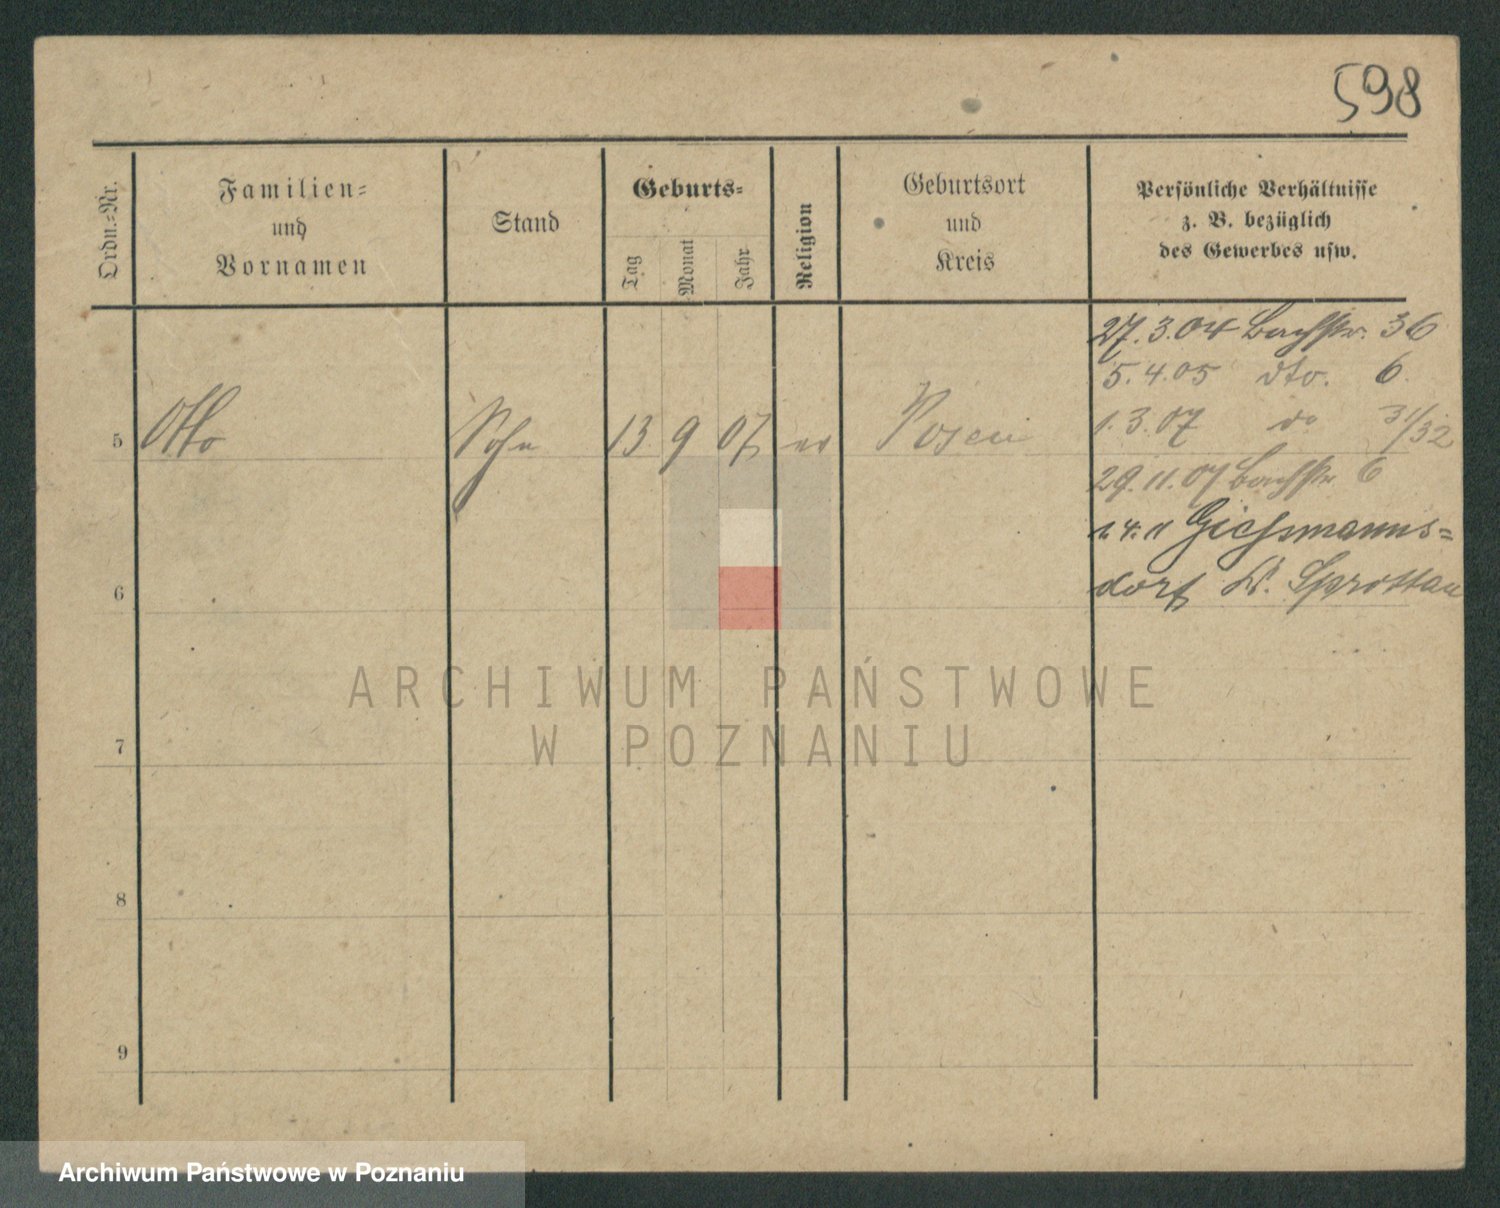 598
Ordn.-Nr.
Familien-
und
Vornamen
Stand
Geburts-
Tag
Monat
Jahr
Religion
Geburtsort
und
Kreis
Persönliche Verhältnisse
z. B. bezüglich
des Gewerbes usw.
27.3.04 Bachstr. 36
5.4.05 dto. 6.
1.3.07 do 31/32
5 Otto Sohn 13 9 07 ev Posen
29.11.07 Bachstr 6
Gießmanns=
dorf Kr. Sprottau
6
7
8
9
ARCHIWUM PAŃSTWOWE
W POZNANIU
Archiwum Państwowe w Poznaniu